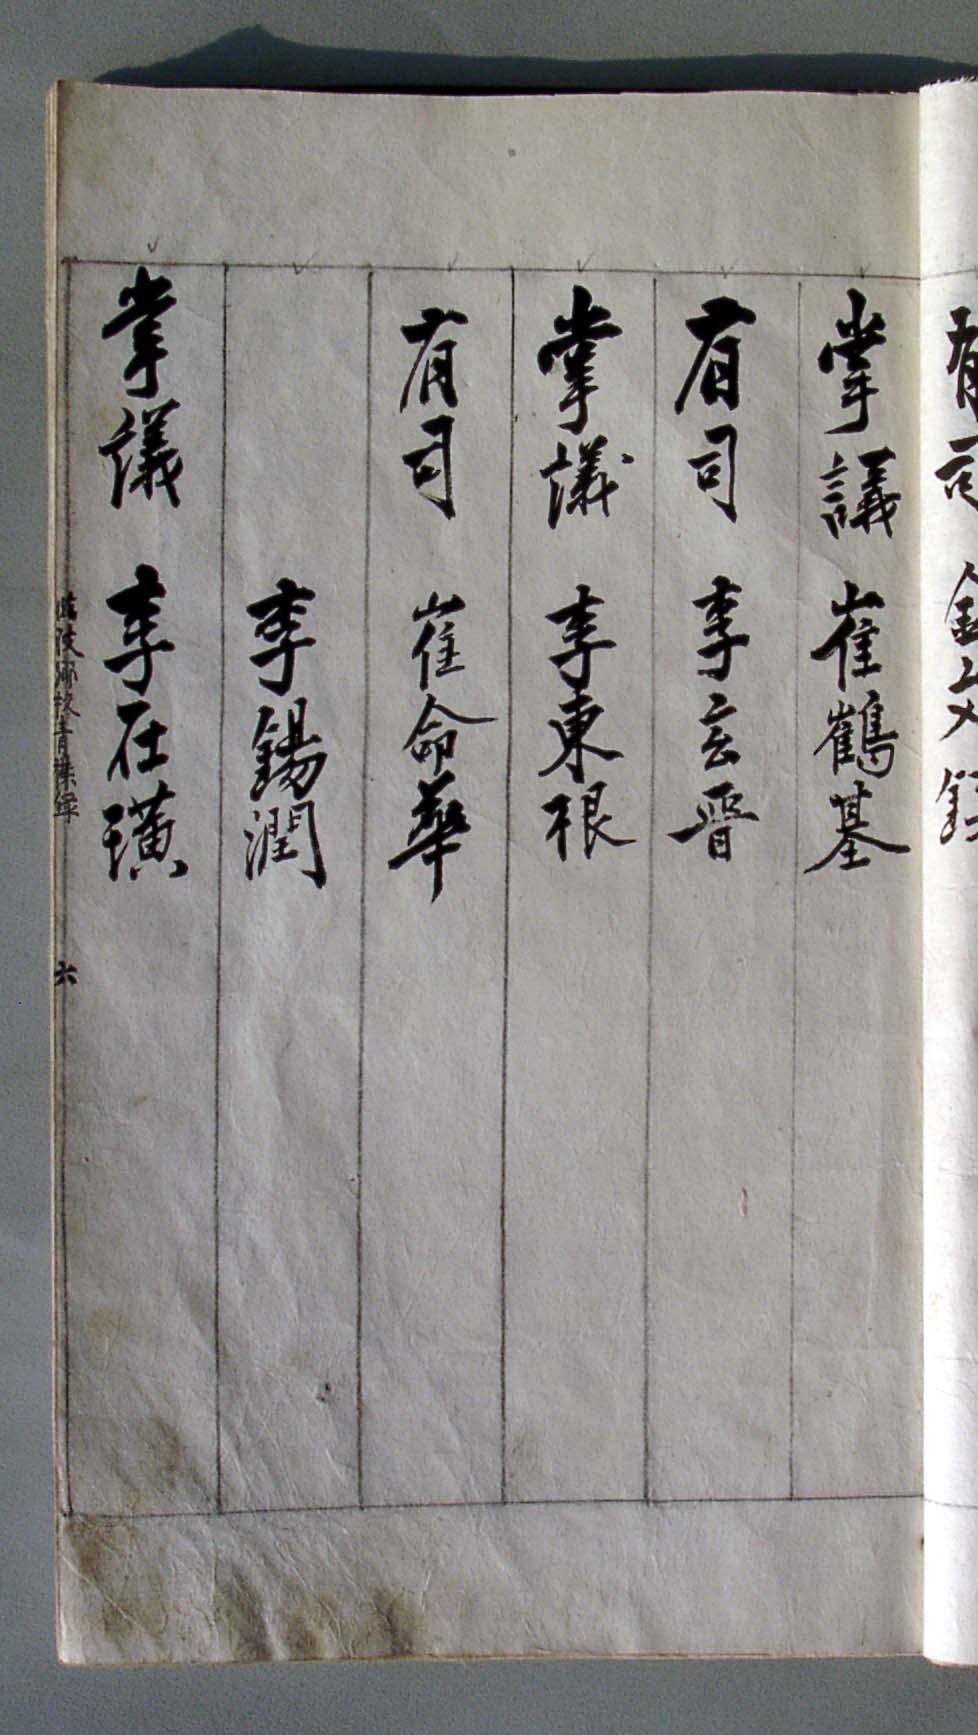 有司 金文鉉
掌議 崔鶴基
有司 李玄晉
掌議 李東根
有司 崔命華
李錫潤
掌議 李在璜
臨陂鄕校靑襟錄 六